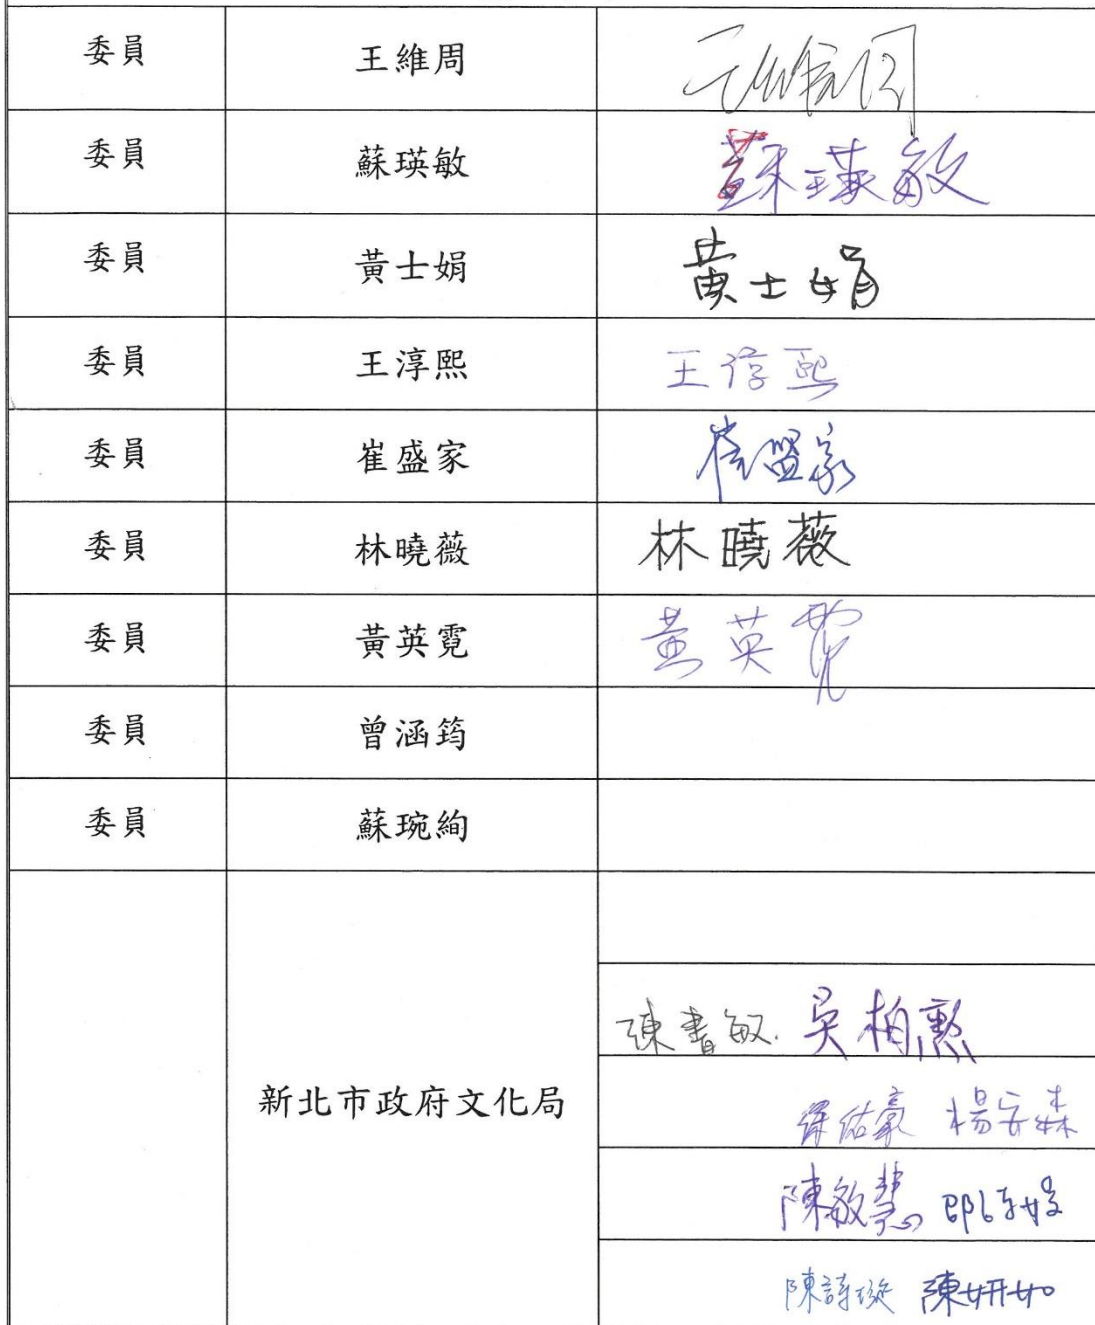 委員 王維周 王維周
委員 蘇瑛敏 蘇瑛敏
委員 黃士娟 黃士娟
委員 王淳熙 王淳熙
委員 崔盛家 崔盛家
委員 林曉薇 林曉薇
委員 黃英霓 黃英霓
委員 曾涵筠
委員 蘇琬絢
陳書敏 吳柏勲
新北市政府文化局
佑豪 楊安森
陳敏慧
陳詩璇 陳妍如